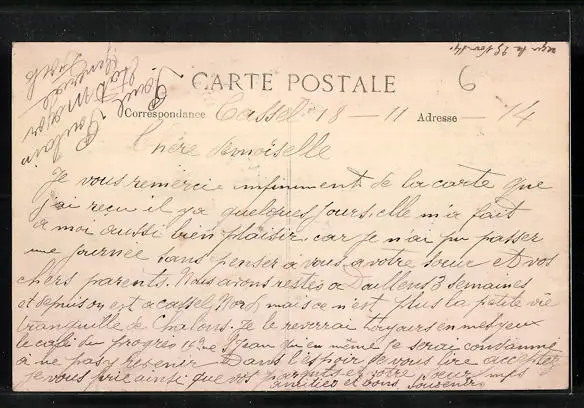 reçu le 23 Nov 14
6
CARTE POSTALE
Correspondance Cassel 18 - 11 Adresse - 14
Chère demoiselle
Je vous remerci infiniment de la carte que
j'ai reçu il y a quelques jours, elle m'a fait
a moi aussi bien plaisir, car je n'ai pu passer
une journée sans penser à vous a votre soeur et vos
chers parents. Nous avons restés a Doullens 3 semaines
et depuis on est a cassel, Nord, mais ce n'est plus la petite vie
tranquille de Chalons. Je le reverrai toujours en mes yeux
le café du progrès 14 St Jean qui en même je serai condamné
à ne pas y revenir. Dans l'espoir de vous lire acceptez
je vous prie ainsi que vos parents et votre soeur mes
amitiés et bons souvenirs
Poulain
Etat major
General
Foch